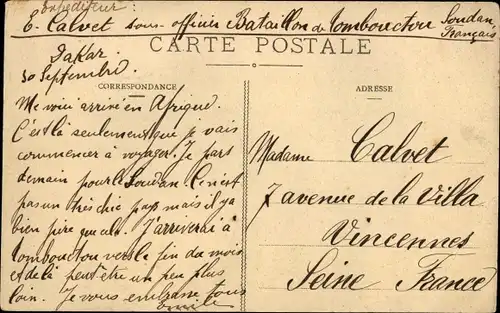 Expéditeur :
E. Calvet sous-officier Bataillon de Tombouctou Soudan Français
CARTE POSTALE
Dakar
30 Septembre
CORRESPONDANCE
Me voici arrivé en Afrique.
C'est là seulement que je vais
commencer à voyager. Je pars
demain pour le Soudan. Ce n'est
pas un très chic pays mais il y a
bien pire que cela. J'arriverai à
Tombouctou vers la fin du mois
et de là peut être un peu plus
loin. Je vous embrasse tous
Emile
ADRESSE
Madame Calvet
7 avenue de la Villa
Vincennes
Seine France